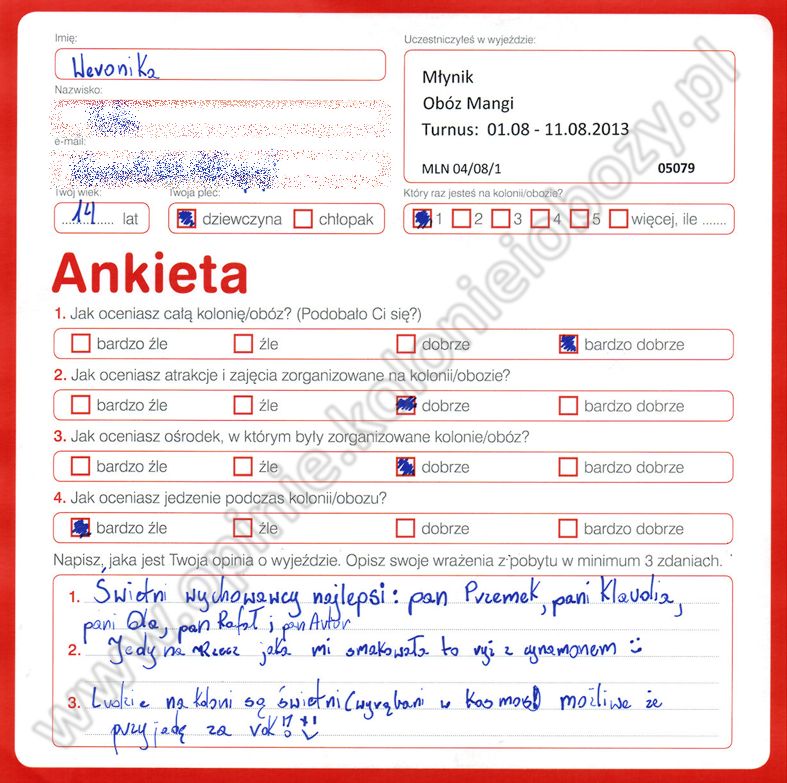 Imię:
Weronika
Nazwisko:
e-mail:
Twój wiek:
14 lat
Twoja płeć:
dziewczyna chłopak
Uczestniczyłeś w wyjeździe:
Młynik
Obóz Mangi
Turnus: 01.08 - 11.08.2013
MLN 04/08/1 05079
Który raz jesteś na kolonii/obozie?
1 2 3 4 5 więcej, ile .......
Ankieta
1. Jak oceniasz całą kolonię/obóz? (Podobało Ci się?)
bardzo źle źle dobrze bardzo dobrze
2. Jak oceniasz atrakcje i zajęcia zorganizowane na kolonii/obozie?
bardzo źle źle dobrze bardzo dobrze
3. Jak oceniasz ośrodek, w którym były zorganizowane kolonie/obóz?
bardzo źle źle dobrze bardzo dobrze
4. Jak oceniasz jedzenie podczas kolonii/obozu?
bardzo źle źle dobrze bardzo dobrze
Napisz, jaka jest Twoja opinia o wyjeździe. Opisz swoje wrażenia z pobytu w minimum 3 zdaniach.
1. Świetni wychowawcy najlepsi: pan Przemek, pani Klaudia,
pani Ola, pan Rafał i pan Autor
2. Jedyna Rzecz jaka mi smakowała to ryż z cynamonem
3. Ludzie na koloni są świetni (wyrąbani w kosmos!) możliwe że
przyjadę za rok!!
www.opinie.kolonieiobozy.pl